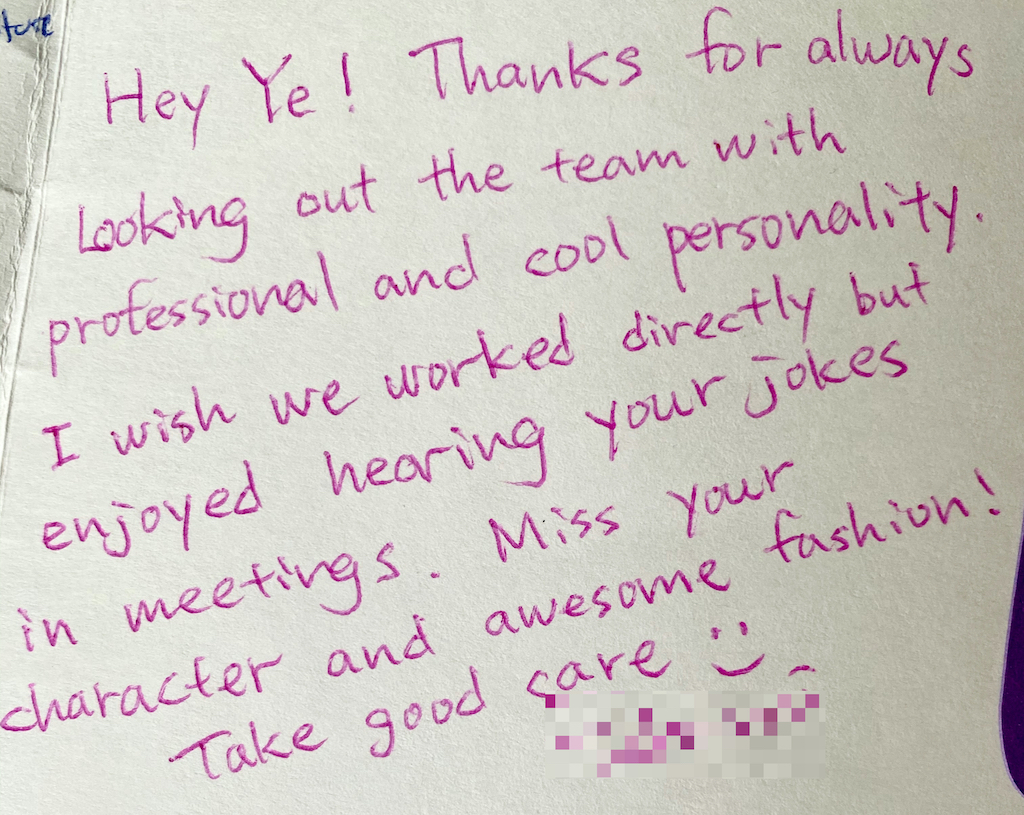 Hey Ye! Thanks for always
looking out the team with
professional and cool personality.
I wish we worked directly but
enjoyed hearing your jokes
in meetings. Miss your
character and awesome fashion!
Take good care :)